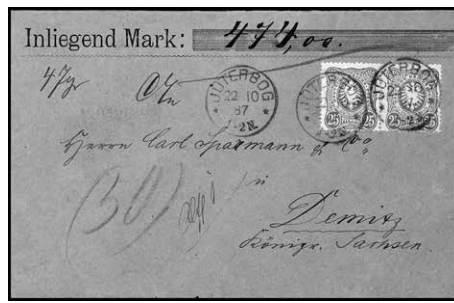 Inliegend Mark: 474,00.
47gr An
JÜTERBOG 22 10 87 1-2N.
JÜTERBOG
JÜTERBOG
25 25 25 25
Herrn Carl Sparmann & Co
(30)
in
Demitz
Königr. Sachsen.